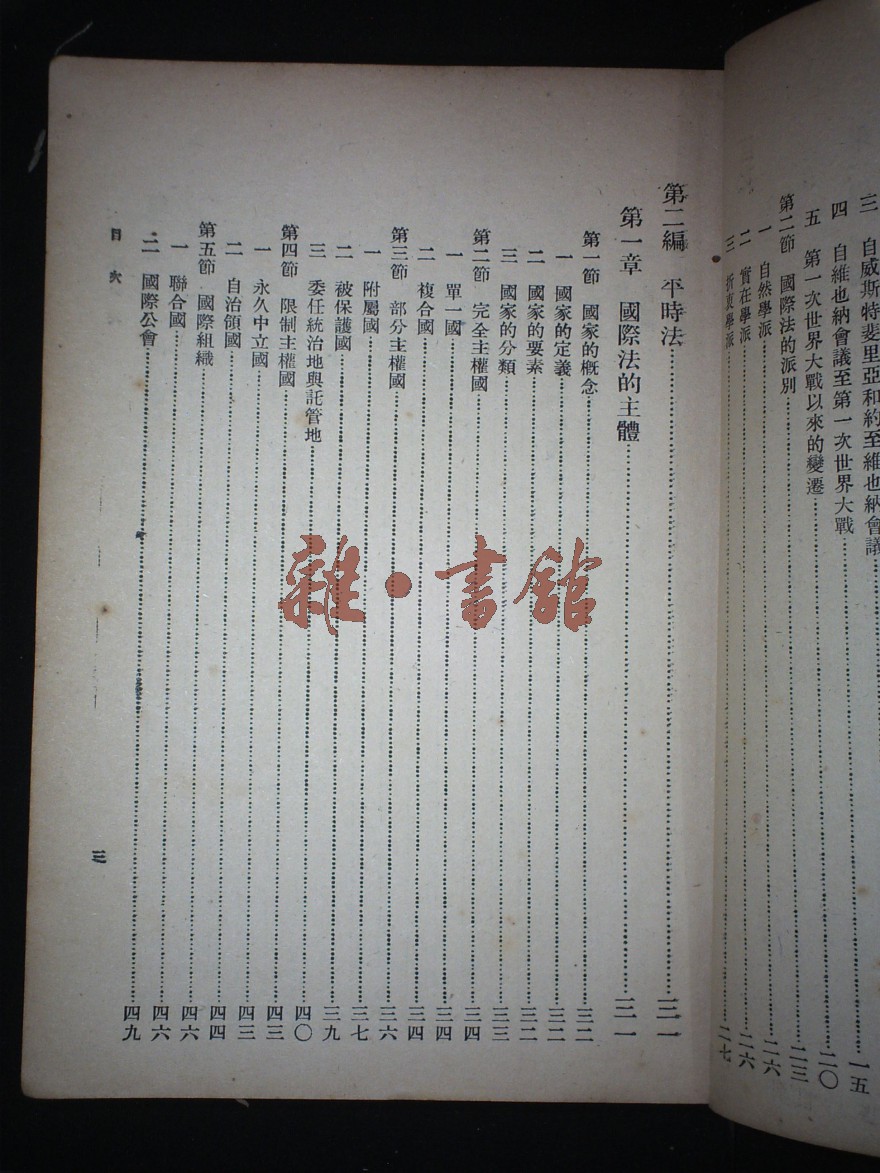 三 自威斯特斐里亞和約至維也納會議
四 自維也納會議至第一次世界大戰……一五
五 第一次世界大戰以來的變遷……二〇
第二節 國際法的派別……二三
一 自然學派……二六
二 實在學派……二六
三 折衷學派……二七
第二編 平時法……三一
第一章 國際法的主體……三一
第一節 國家的概念……三二
一 國家的定義……三二
二 國家的要素……三二
三 國家的分類……三三
第二節 完全主權國……三四
一 單一國……三四
二 複合國……三四
第三節 部分主權國……三六
一 附屬國……三七
二 被保護國……三九
三 委任統治地與託管地……四〇
第四節 限制主權國……四三
一 永久中立國……四三
二 自治領國……四四
第五節 國際組織……四六
一 聯合國……四六
二 國際公會……四九
目次
三
雜·書館